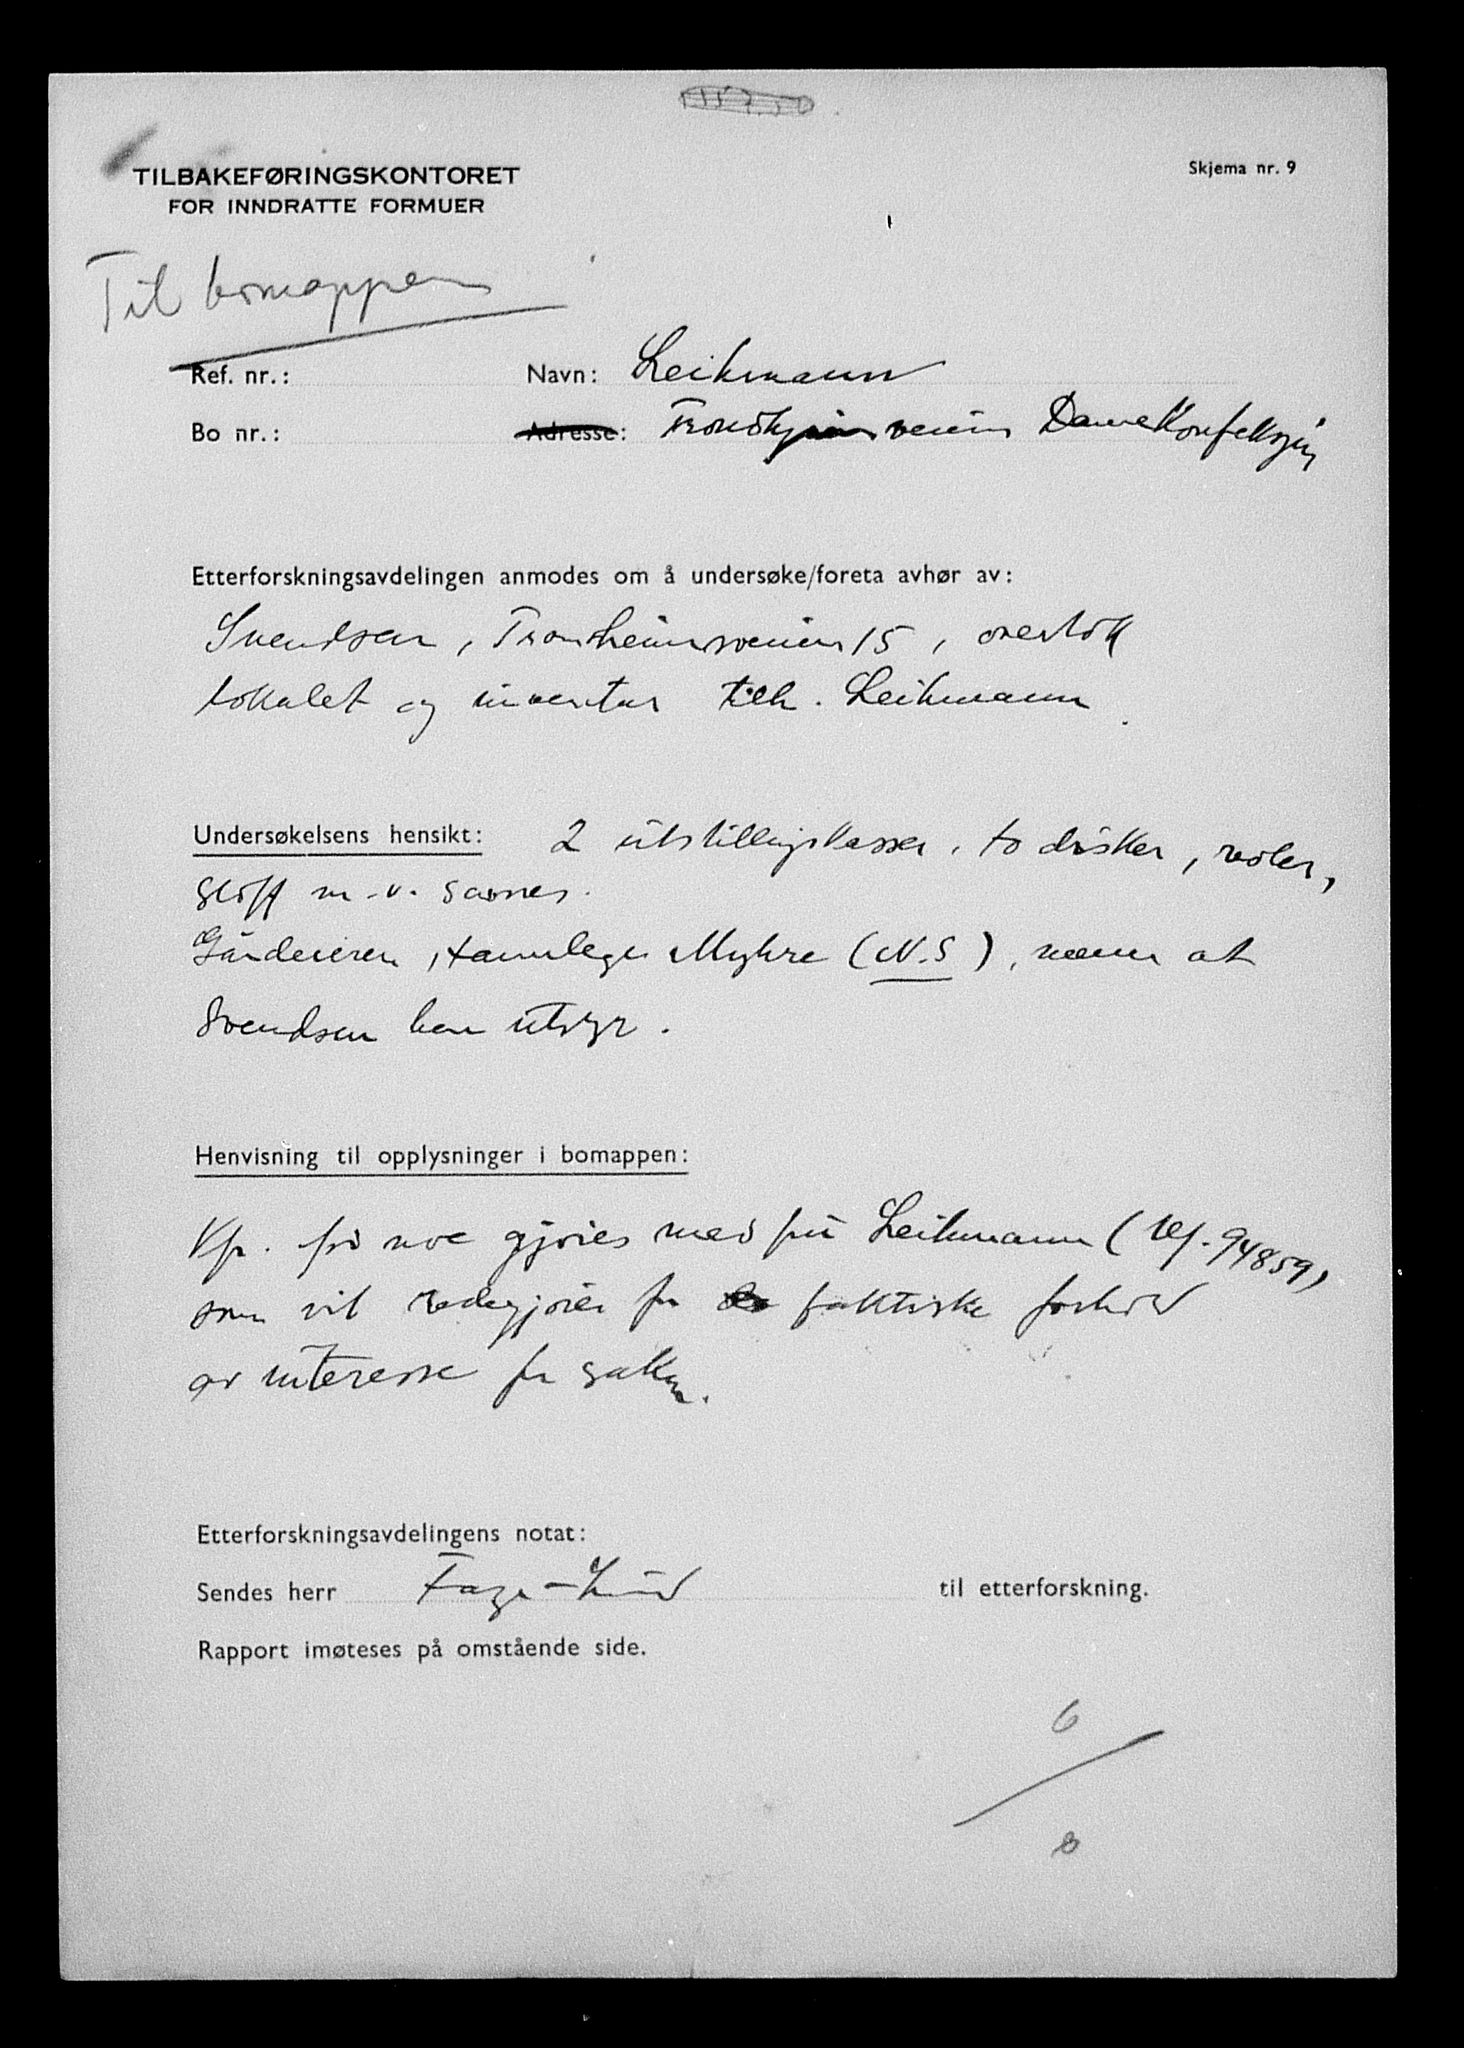 TILBAKEFØRINGSKONTORET
FOR INNDRATTE FORMUER
Skjema nr. 9
Til bomappen
Ref. nr.:
Navn: Leikmann
Bo nr.:
Adresse: veien Damekonfeksjon
Etterforskningsavdelingen anmodes om å undersøke/foreta avhør av:
Svendsen, Tronheimsveien 15, overtok
lokalet og inventar tilh. Leikmann.
Undersøkelsens hensikt: 2 utstillingskasser, to disker, reoler,
stoff m.v. savnes.
Gårdeieren, tannlege Myhre (N.S), mener at
Svendsen har utstyr.
Henvisning til opplysninger i bomappen:
Kfr. før noe gjøres med fru Leikmann (ref. 94859)
som vil redegjøre for faktiske forhold
av interesse for saken.
Etterforskningsavdelingens notat:
Sendes herr til etterforskning.
Rapport imøteses på omstående side.
6
/
8